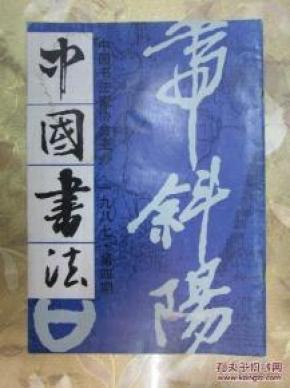 中國書法
中国书法家协会主办
一九八七·第四期
斜陽
孔夫子旧书网